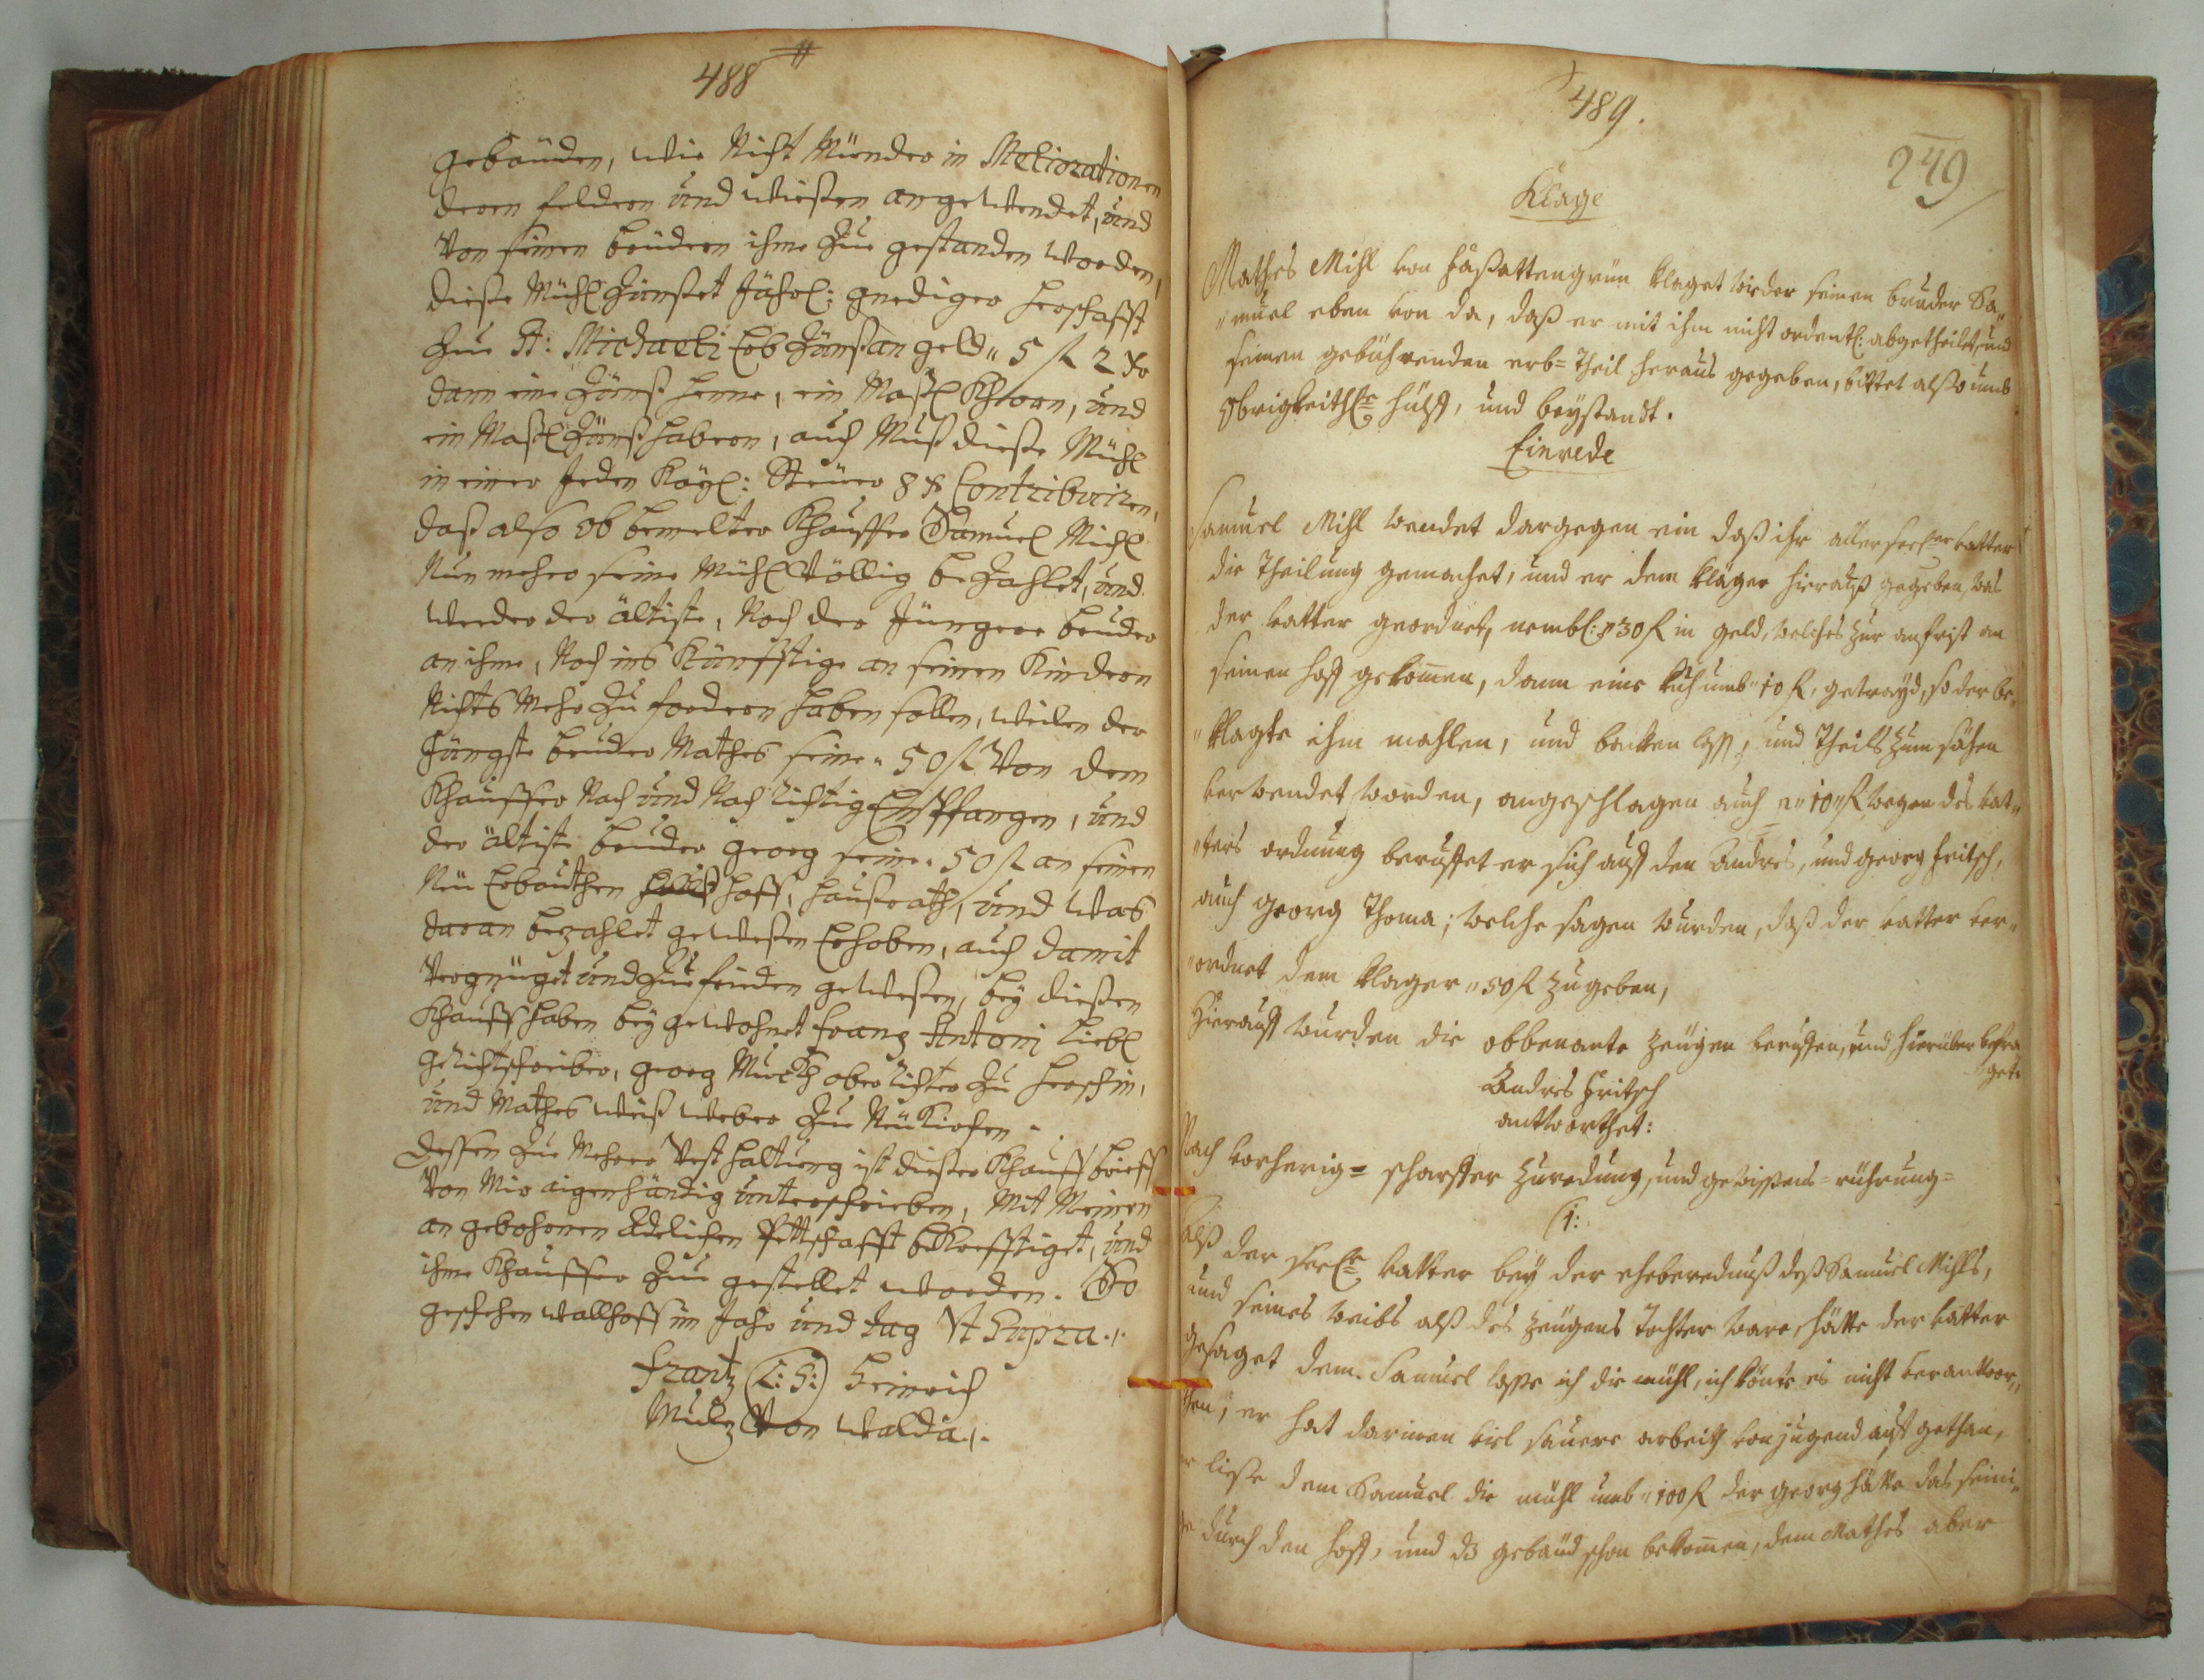 488
gebäuden, wie Nicht Münder in Meliorationen
deren feldern und wießen angewendet, und
Von seinen brüdern ihme Zue gestanden worden,
dieße Mühl Zünßet Jährl: gnediger herschafft
Zue St: Michaeli Erb Zünß an geld " 5 fl 2 xr
dann eine Zünß henne, ein Maßl Khorn, und
ein Maßl Zünß habern, auch Muß dieße Mühl
in einer Jeden Kayl: Steüer 8 xr Contribuiren,
daß also ob bemelter Khauffer Samuel Michl
Nun mehro seine Mühl Völlig bezahlet, und
weder der ältiste, Noch der Jüngere bruder
an ihme, Noch ins Künfftige an seinen Kindern
Nichts Mehr Zu fordern haben sollen, weilen der
Jüngste bruder Mathes seine " 50 fl Von dem
Khauffer Nach und Nach richtig Empfangen, und
der ältiste bruder georg seine " 50 fl an seinen
Neü Erbauthen hoff, haußrath, und was
daran bezahlet geweßen Erhoben, auch damit
Vergnüget und Zue frieden geweßen, bey dießen
Khauff haben bey gewohnet Franz Antoni Liebl
gerichtschreiber, georg Ober richter Zu
und Mathes weiß weber Zue Neükirchen.
dessen Zue Mehrer Vest haltung ist dießer Khauff brieff
Von Mir aigenhändig unterschrieben, Mit Meinen
an gebohrnen Adelichen Pettschafft bekräfftiget, und
ihme Khauffer Zue gestellet worden. So
geschehen wallhoff im Jahr und tag Ut Supra.
Frantz (L:S:) Heinrich
Mulz Von walda.
489.
249
Klage
Mathes Mihl von haßattengrün klaget wider seinen bruder Sa„
„muel eben von da, daß er mit ihm nicht ordentl: abgetheilet, und
seinen gebührenden erb= Theil heraus gegeben, bittet alßo umb
Obrigkeithle hülff, und beystandt.
Einrede
Samuel Mihl wendet dargegen ein daß ihr aller seeler vatter
die Theilung gemachet, und er dem kläger hierauß gegeben, was
der vatter geordnet, nembl: 30 fl in geld, welches zur anfrist an
seinen hoff gekommen, dann eine kuh umb " 10 fl, getrayd, so der be„
„klagte ihm mahlen, und backen lass, und Theils zum sähen
verwendet worden, angeschlagen auch " 10 " fl wegen des vat„
„ters ordnung beruffet er sich auff den Andres, und georg fritsch,
auch georg Thoma; welche sagen wurden, daß der vatter ver„
„ordnet dem klager " 50 fl zugeben,
Hierauff wurden die obbenante zeügen beruffen, und hierüber befra
get.
Andres Fritsch
antworthet:
Nach vorherig= scharffer zuredung, und gewissens= rührung=
1:
Alß der seele vatter bey der eheberednuß deß Samuel Mihls,
und seines weibs alß des zeügens Tochter ware, hätte der vatter
gesaget dem Samuel lasse ich die mühl, ich könte es nicht verantwor„
ten; er hat darinnen viel sauere arbeith von jugend auf gethan,
er ließe dem Samuel die mühl umb " 100 fl der georg hätte das seini„
ge durch den hoff, und dz gebäud schon bekommen, dem Mathes aber